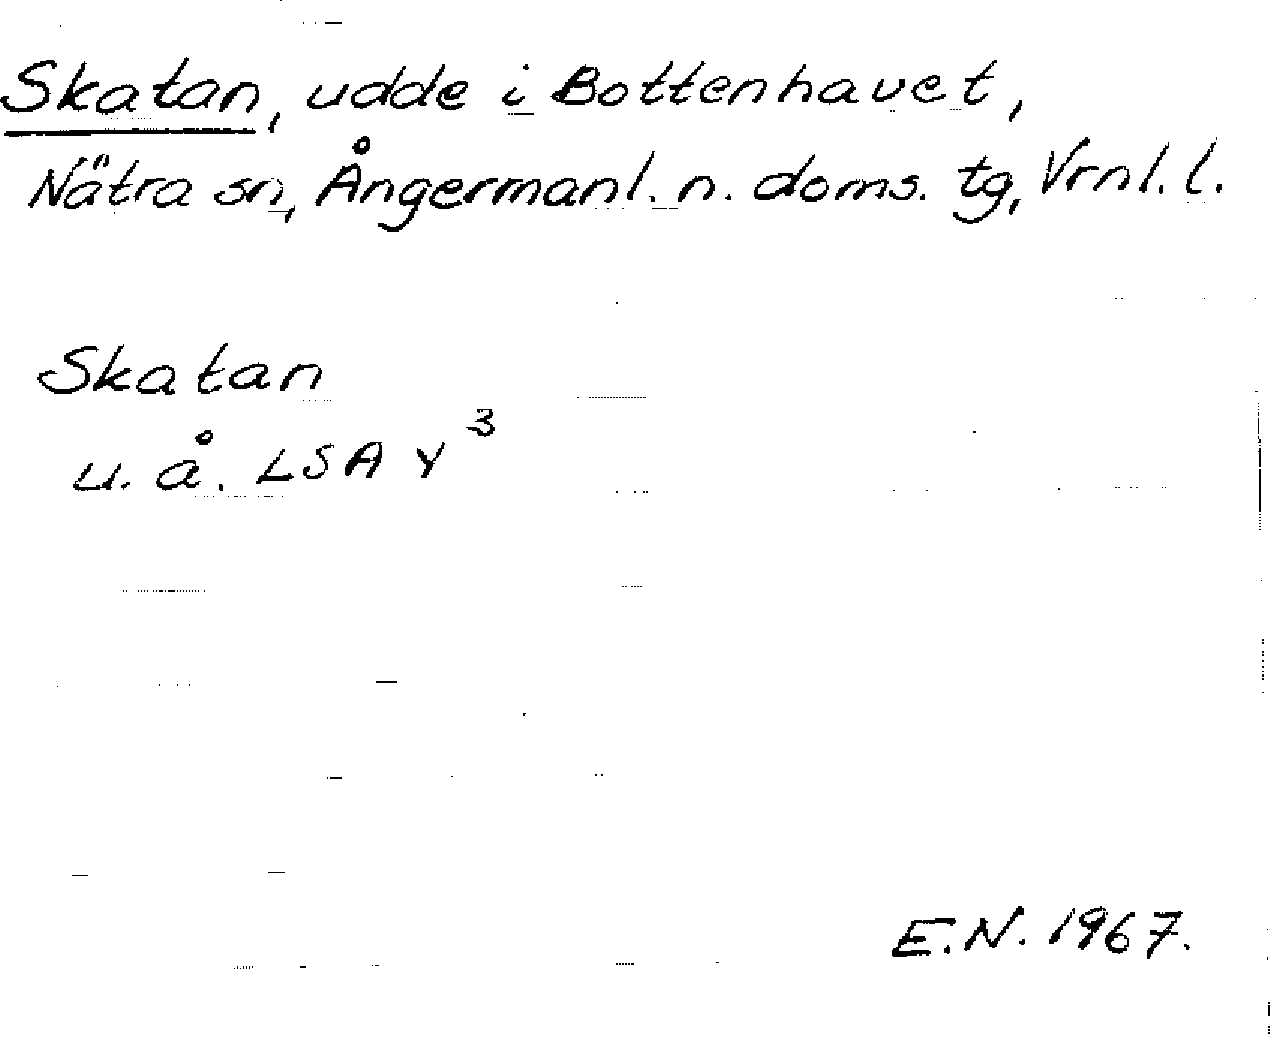 Skatan, udde i Bottenhavet,
Nätra sn, Ångermanl. n. doms. tg, Vrnl. l.
Skatan
u. å. LSA Y³
E.N. 1967.